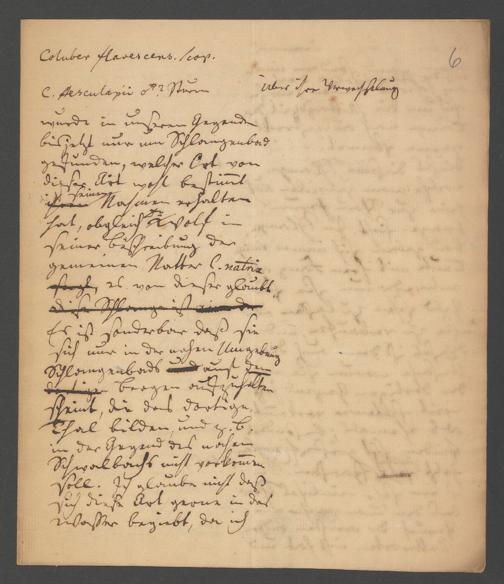 6
Coluber flavescens. Scop.
C. Aesculapii ? Sturm
über ihre Verwechslung
wurde in unseren Gegenden
bis jetzt nur um Schlangenbad
gefunden, welcher Ort von
dieser Art wohl bestimmt
seinen
Nahmen erhalten
hat, obgleich Wolf in
seiner Beschreibung der
gemeinen Natter C. natrix
es von dieser glaubt.
diese Schlange ist
Es ist sonderbar daß sie
sich nur in der nahen Umgebung
Schlangenbads und auf den
dortigen Bergen aufzuhalten
scheint, die das dortige
Thal bilden, und z. B.
in der Gegend des nahen
Schwalbachs nicht vorkommen
soll. Ich glaube nicht daß
sich diese Art gerne in das
Wasser begiebt, da ich